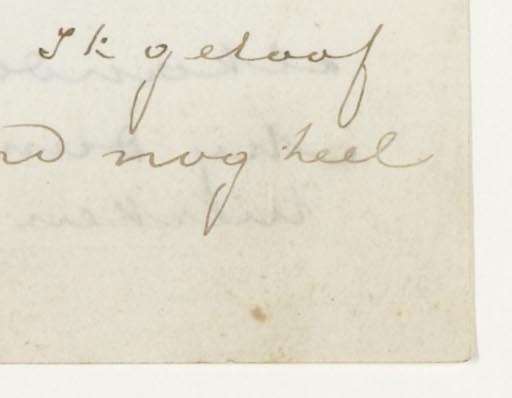 Ik geloof
nd nog heel